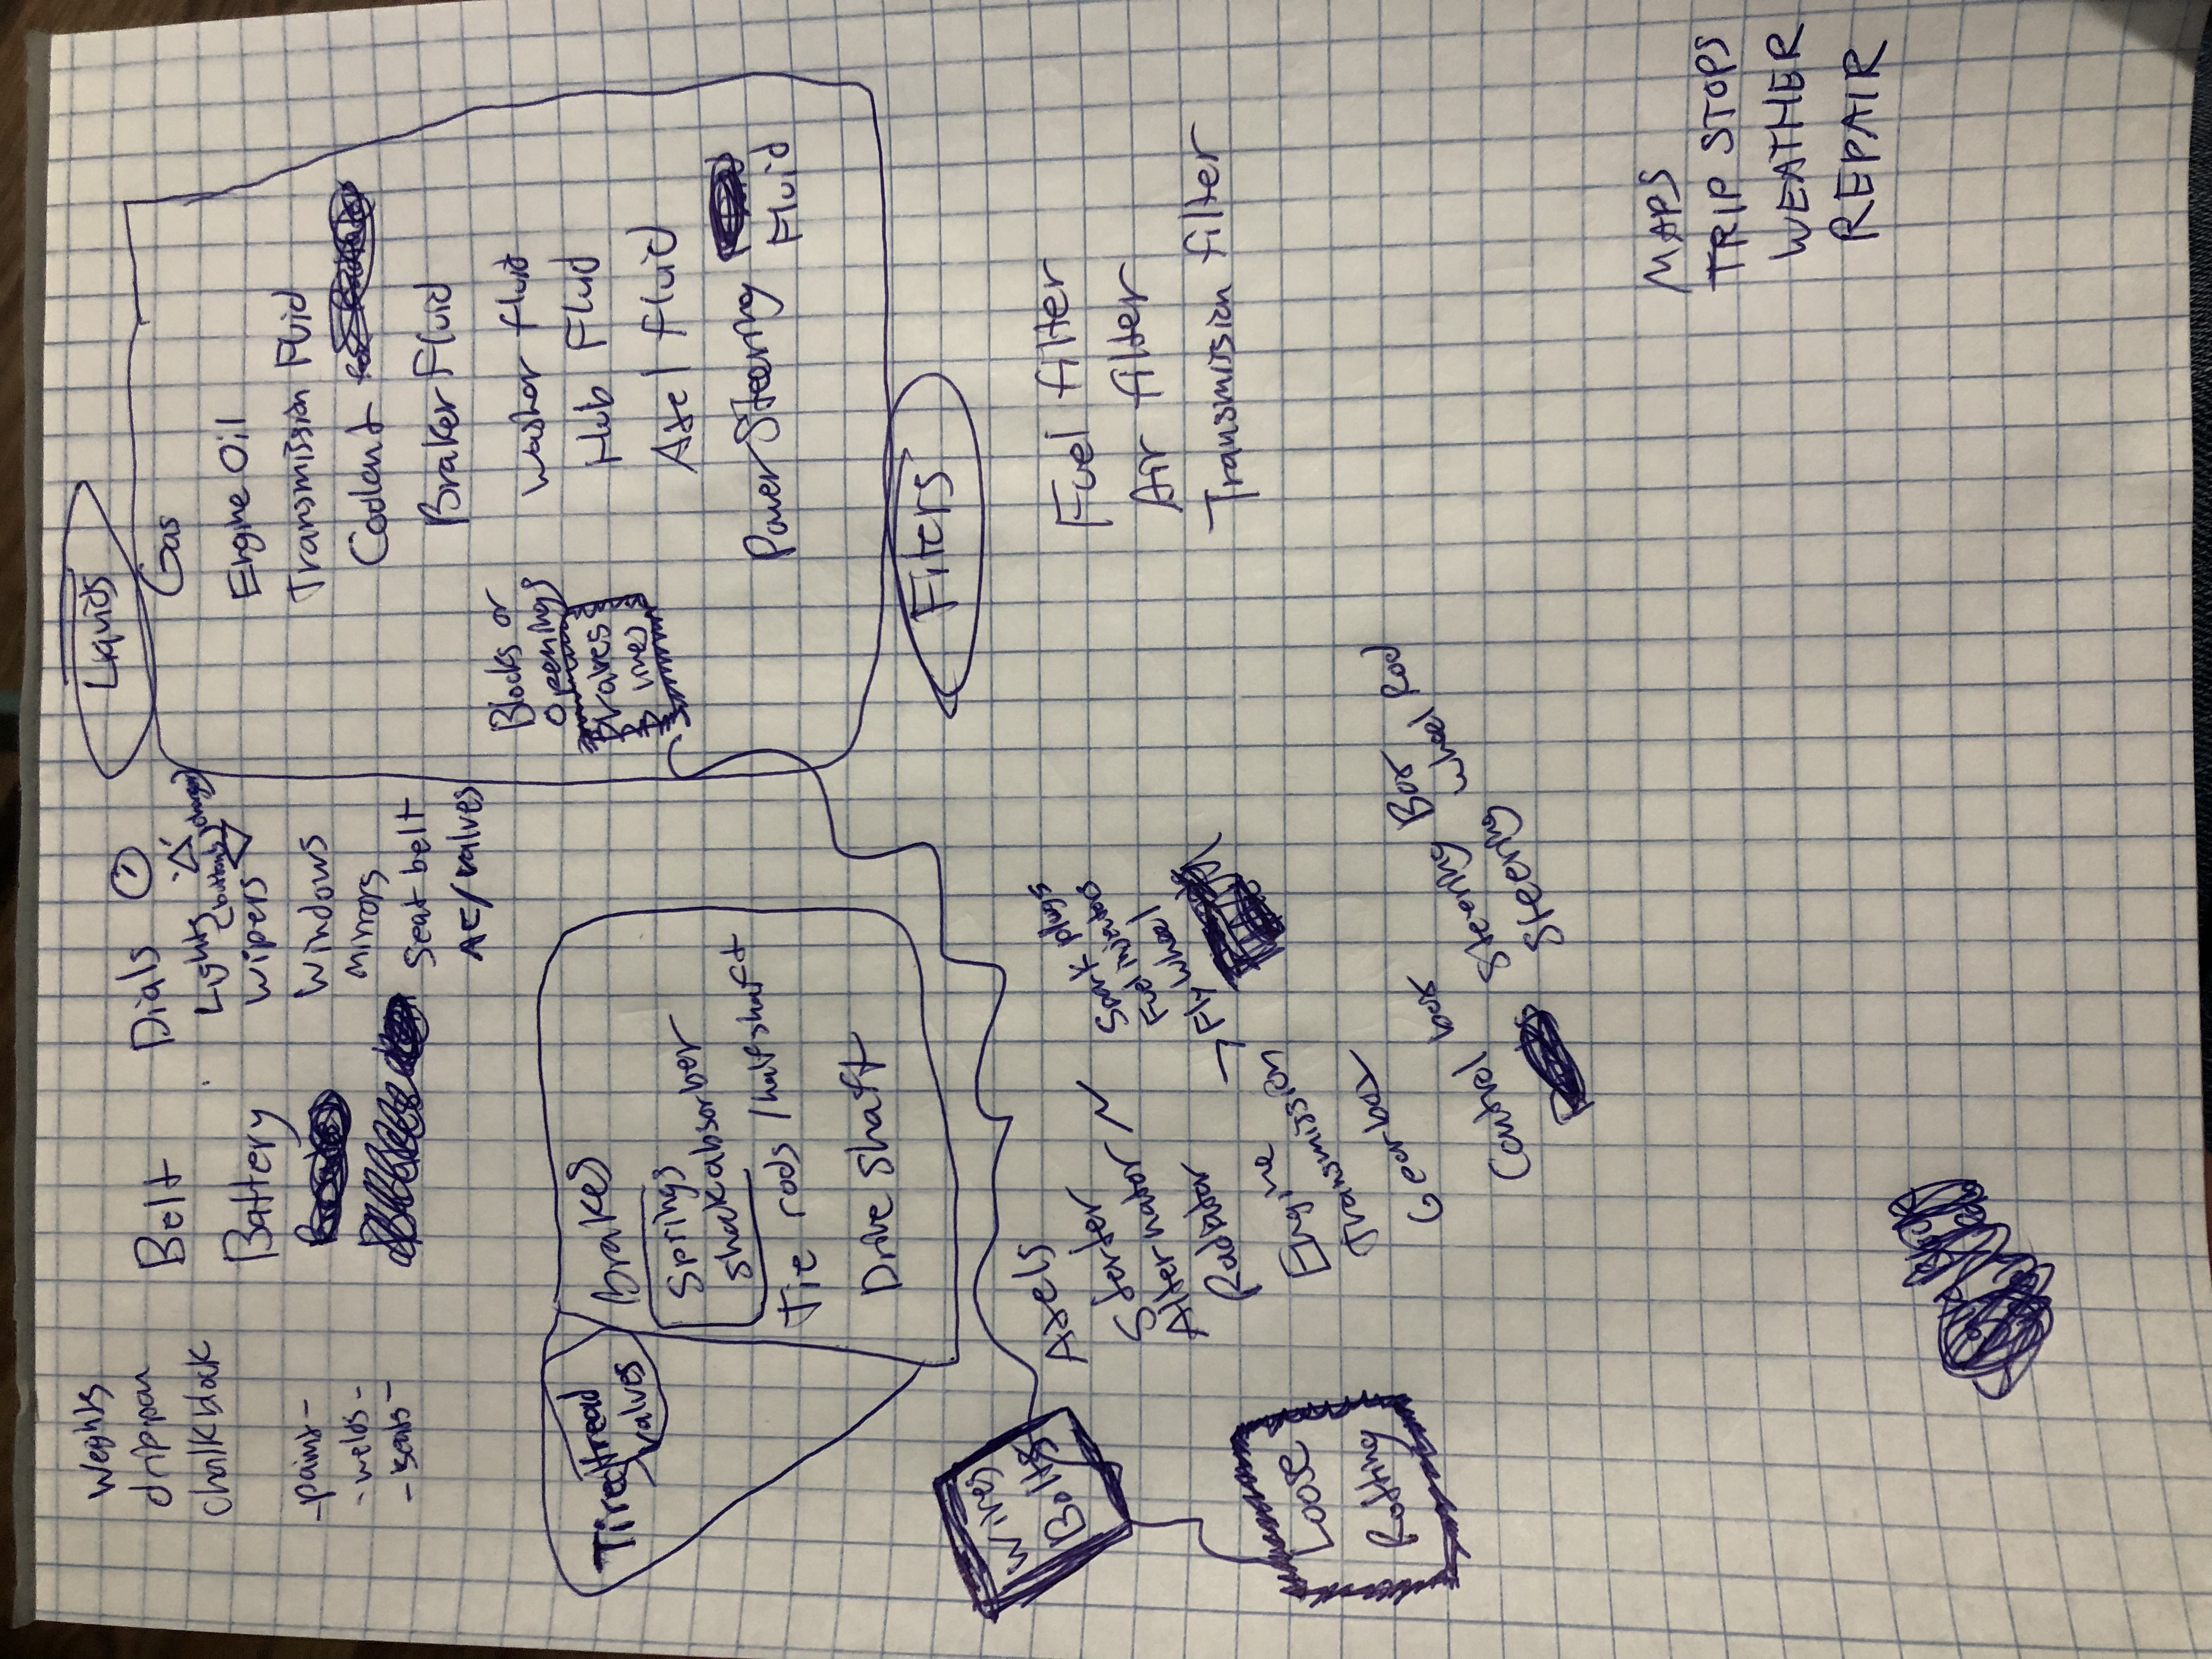 Weights
drip pan
chalk block
-paint-
-welds-
-seats-
Belt
Battery
Dials
Lights
(buttons)
Wipers
Windows
mirrors
seat belt
AC/valves
Liquids
Gas
Engine Oil
Transmission Fluid
Coolant
Braker Fluid
washor fluid
Hub Fluid
Axel fluid
Power Steering
Fluid
Blocks or
openings
Tires
tread
valves
Brakes
Springs
shock absorber
Tie rods / half shaft
Drive shaft
Filters
Fuel filter
Air filter
Transmission filter
Wires
Bolts
Loose
Rotting
Axels
Starter
Alternator
Radiator
Engine
Transmission
Gear box
Control box
spark plugs
Fuel injectors
→ Fly wheel
Steering Box
Steering wheel Rod
MAPS
TRIP STOPS
WEATHER
REPAIR